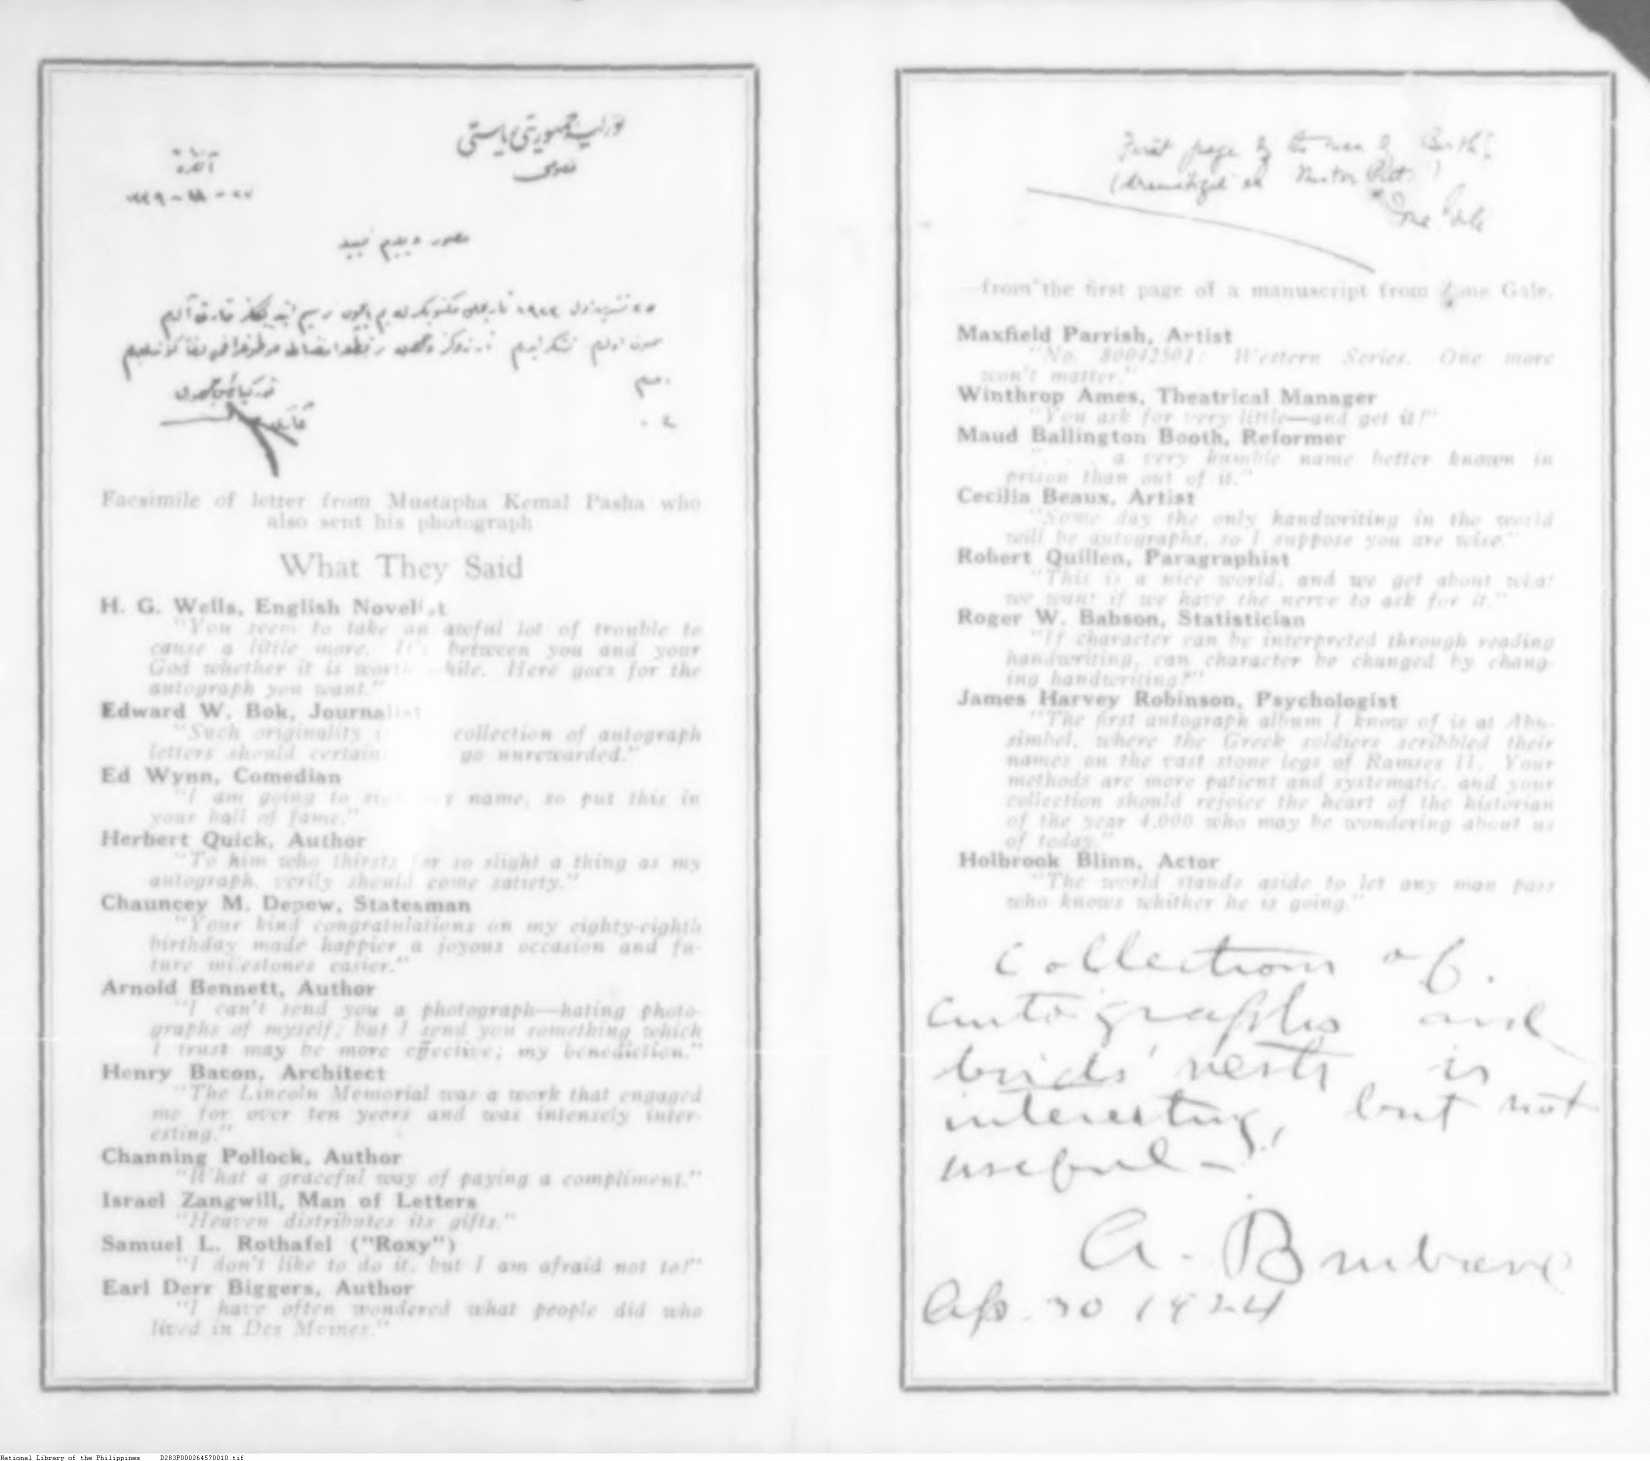 تورکیه جمهوریتی ریاستی
آنقره
Facsimile of letter from Mustapha Kemal Pasha who
also sent his photograph
What They Said
H. G. Wells, English Novelist
"You seem to take an awful lot of trouble to
cause a little more. It's between you and your
God whether it is worth while. Here goes for the
autograph you want."
Edward W. Bok, Journalist
"Such originality collection of autograph
letters should go unrewarded."
Ed Wynn, Comedian
"I am going to name, so put this in
your hall of fame."
Herbert Quick, Author
"To him who thirsts for so slight a thing as my
autograph, verily should come satiety."
Chauncey M. Depew, Statesman
"Your kind congratulations on my eighty-eighth
birthday made happier a joyous occasion and fu-
ture milestones easier."
Arnold Bennett, Author
"I can't send you a photograph—hating photo-
graphs of myself; but I send you something which
I trust may be more effective; my benediction."
Henry Bacon, Architect
"The Lincoln Memorial was a work that engaged
me for over ten years and was intensely inter-
esting."
Channing Pollock, Author
"What a graceful way of paying a compliment."
Israel Zangwill, Man of Letters
"Heaven distributes its gifts."
Samuel L. Rothafel ("Roxy")
"I don't like to do it, but I am afraid not to!"
Earl Derr Biggers, Author
"I have often wondered what people did who
lived in Des Moines."
First page of Birth
(dramatized as Mister Pitt)
Zona Gale
from the first page of a manuscript from Zona Gale.
Maxfield Parrish, Artist
"No. 80042501: Western Series. One more
won't matter."
Winthrop Ames, Theatrical Manager
"You ask for very little—and get it!"
Maud Ballington Booth, Reformer
". . . a very humble name better known in
prison than out of it."
Cecilia Beaux, Artist
"Some day the only handwriting in the world
will be autographs, so I suppose you are wise."
Robert Quillen, Paragraphist
"This is a nice world, and we get about what
we want if we have the nerve to ask for it."
Roger W. Babson, Statistician
"If character can be interpreted through reading
handwriting, can character be changed by chang-
ing handwriting?"
James Harvey Robinson, Psychologist
"The first autograph album I know of is at Abu-
simbel, where the Greek soldiers scribbled their
names on the vast stone legs of Ramses II. Your
methods are more patient and systematic, and your
collection should rejoice the heart of the historian
of the year 4,000 who may be wondering about us
of today."
Holbrook Blinn, Actor
"The world stands aside to let any man pass
who knows whither he is going."
Collection of
autographs and
birds' nests is
interesting, but not
useful -
A. Brisbane
Ap. 30 1924
National Library of the Philippines D283P000264570010.tif